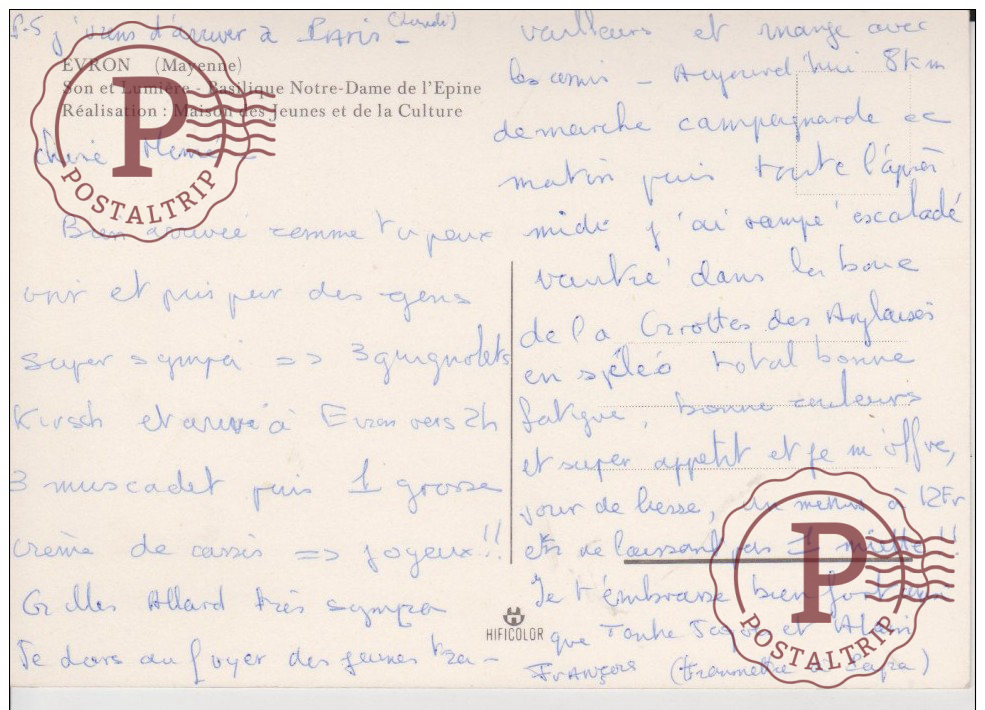 P.S j'viens d'arriver à PARis - (Lundi)
EVRON (Mayenne)
Son et Lumière - Basilique Notre-Dame de l'Epine
Réalisation : Maison des Jeunes et de la Culture
chère Mémé -
Bien arrivée comme tu peux
voir et pris par des gens
super sympa => 3 guignolets
Kirsch et arrivé à Evron vers 2h
3 muscadet puis 1 grosse
crème de cassis => joyeux!!
Gilles Allard très sympa
Je dors au foyer des jeunes tra-
vailleurs et mange avec
les amis - Aujourd'hui 8km
de marche campagnarde ce
matin puis toute l'après
midi j'ai rampé escaladé
vautré dans la boue
de la Grottes des Anglaises
en spéléo total bonne
fatigue, bonne couleurs
et super appetit et je m'offre,
jour de liesse, un menu à 12Fr
en ne laissant pas 1 miette!!
Je t'embrasse bien fort
que Tante et Alain
FRANÇOIS (transmettre à)
HIFICOLOR
P
POSTALTRIP
P
POSTALTRIP